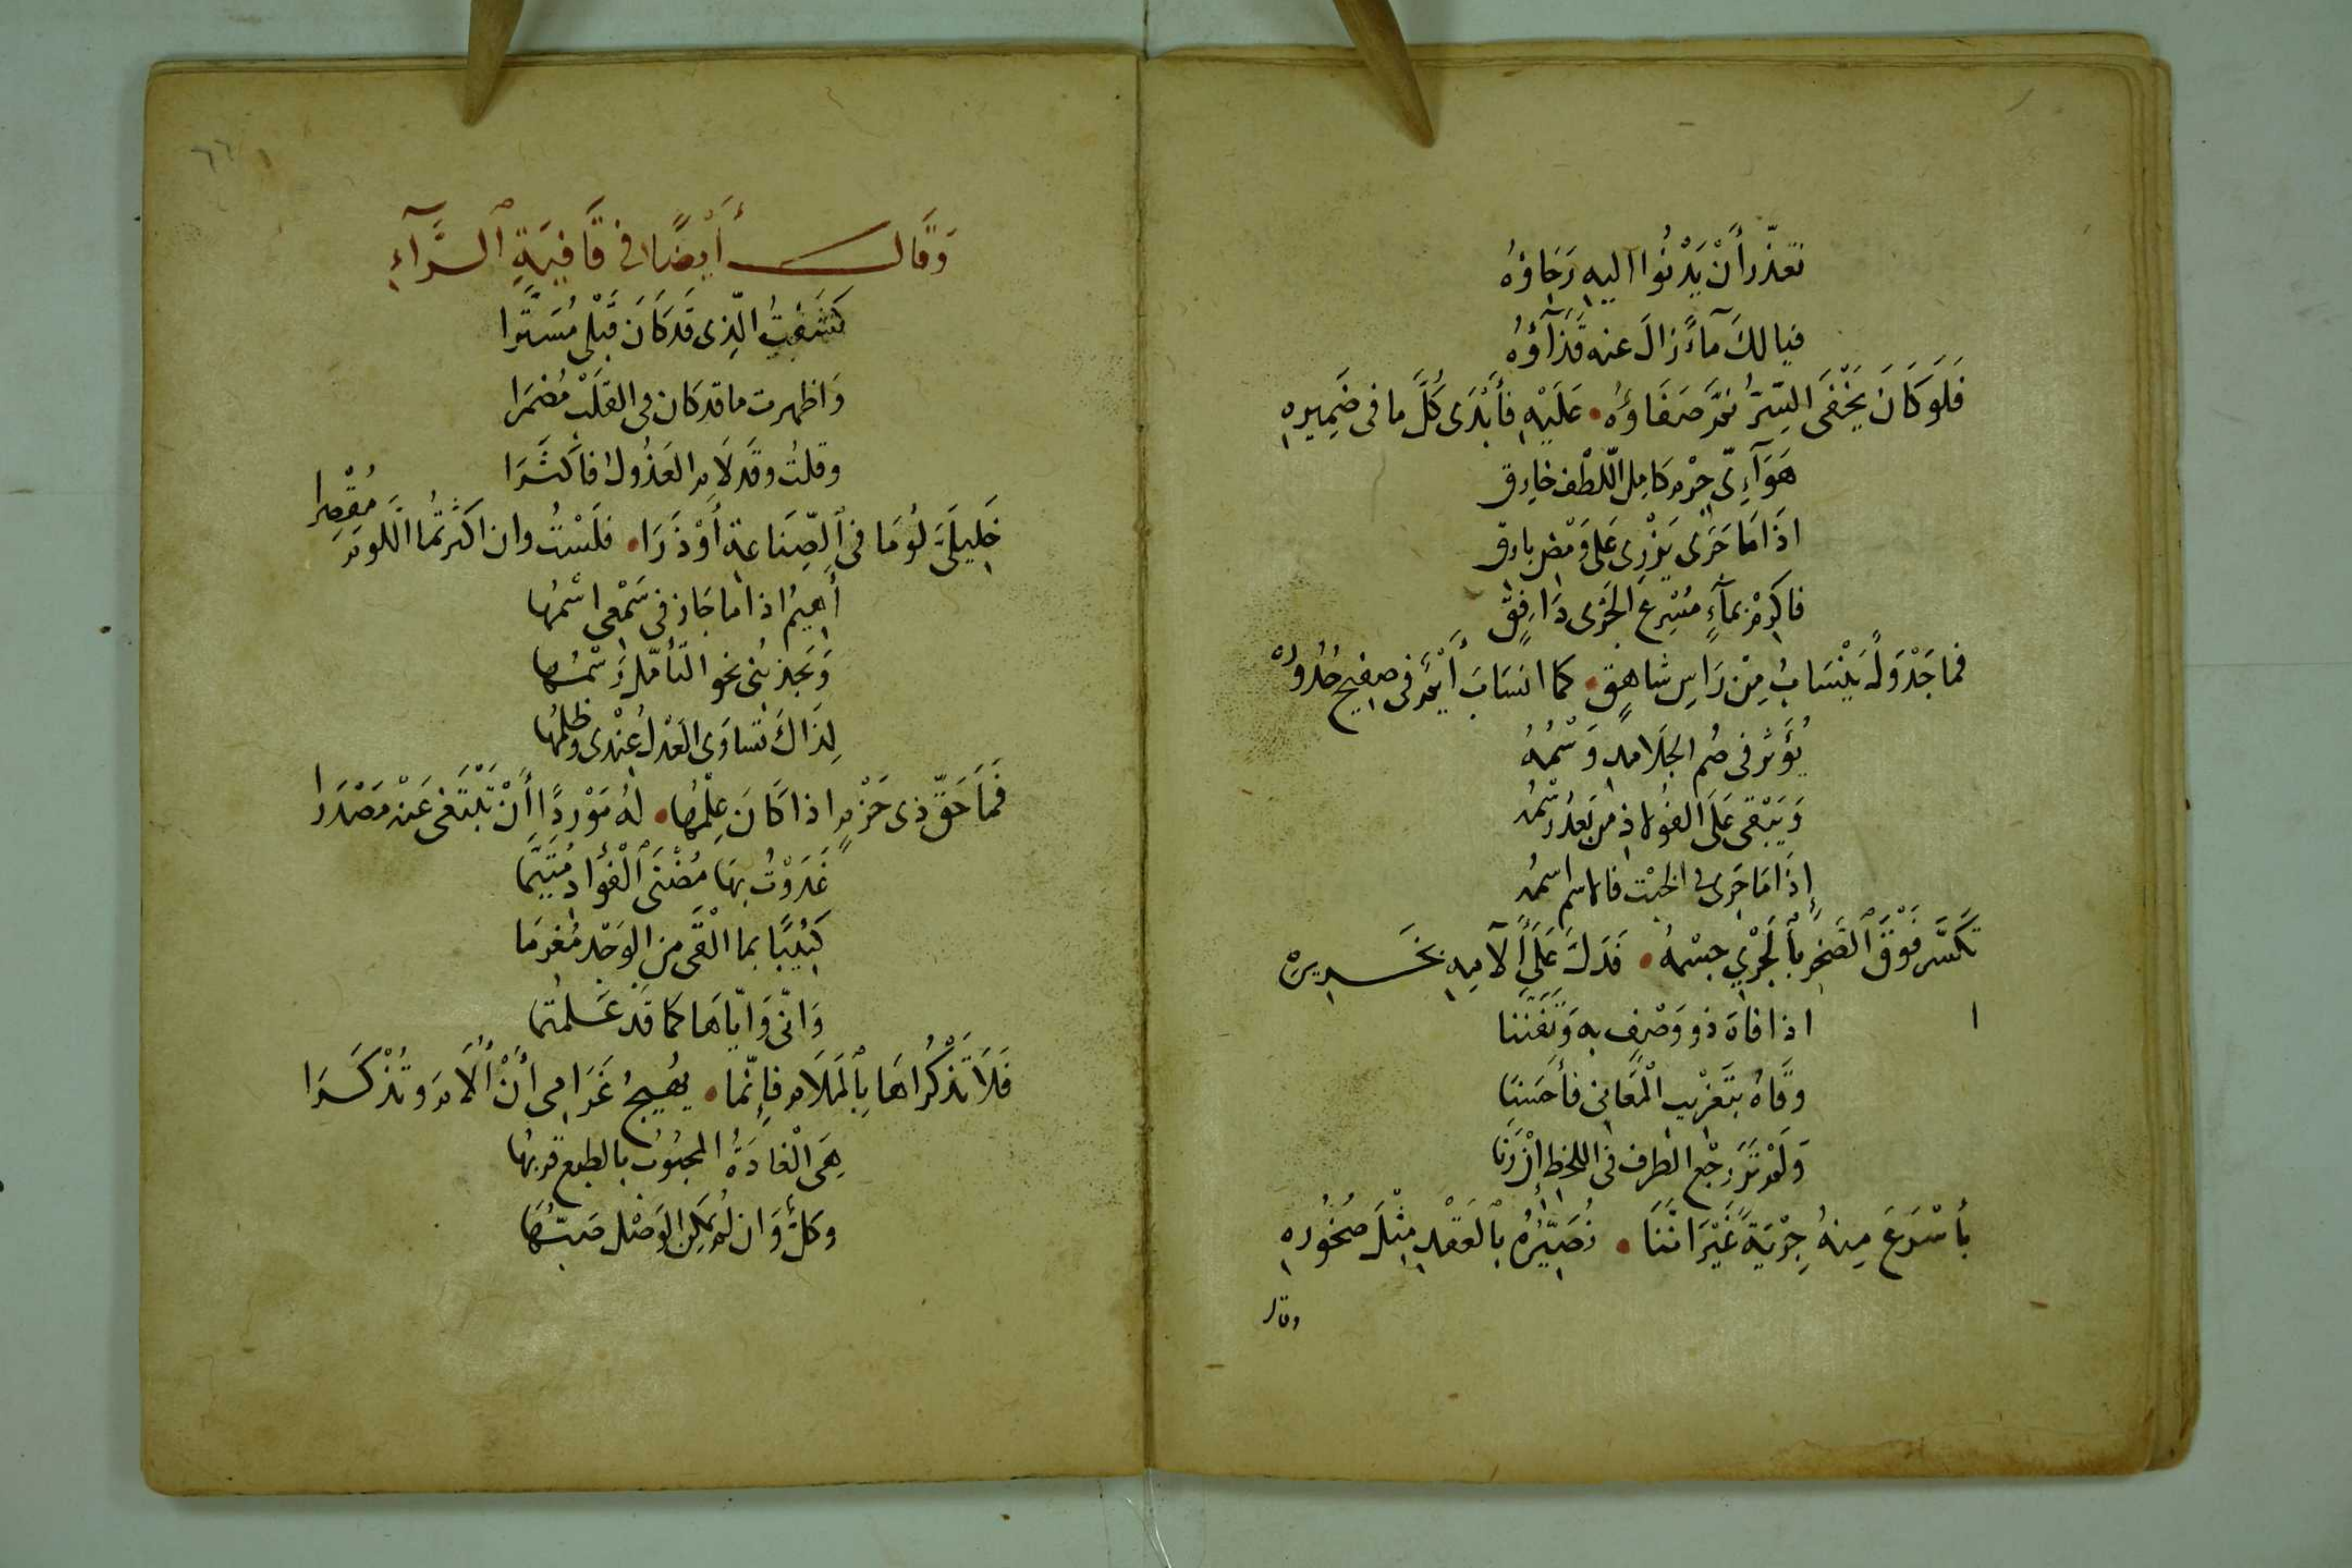 تعذّر أَنْ يَدْنُوا اليه رَخَاؤهُ
فيا لكَ مآءً زالَ عنه قَذَآؤهُ
فَلَو كَانَ يَخْفَى السِّرُّ نمَّ صَفَاؤهُ • عَلَيْهِ فأَبْدَى كُلَّ ما فى ضَمِيرِهِ
هَوَآءِىّ جِرْمٍ كامِل اللّطْفِ خارِق
اذَا مَا جَرَى يَزْرِى عَلى وَمْضِ بارق
فاكرمْ بمآءٍ مُسْرِعِ الجَرْى دَافِقٍ
فما جَدْوَلٌ يَنْسَابُ مِنْ رَاسِ شاهِقٍ • كما انسَابَ أَيْمٌ فى صفيح حُدُورِهْ
يُؤَثر فى صُم الجَلامدِ وَسْمُهُ
وَيَبْقَى عَلَى الفُولاذِ من بَعدُ رسْمُه
إِذَا مَا جَرى فى الخبْت فالاسم اسمُه
تَكَسَّر فَوْقَ ٱلصَّخرِ بٱلجَرْيِ جِسْمُهُ • فَدَلَّ عَلَى آلامِهِ بخَريرِهْ
اذا فاهَ ذو وَصْفٍ به وَتَفَنّنا
وقَاهُ بتَغْرِيبِ الْمَعَانى فأَحسَنَا
وَلَمْ تَرَ رَجْع الطرف فى اللحْظِ إِنْ رَنَا
بأَسْرَعَ مِنهُ جِرْيَةً غَيْرَ انَّنَا • نُصَيِّرُهُ بٱلعَقْدِ مِثْلَ صُخُورِهِ
وقال
٦٦
وَقَالَ أَيْضًا فى قَافِيَةِ ٱلرَّآءِ
كَشَفْتُ الَّذِى قَد كَانَ قَبْلى مُسَتَّرا
وَاظهرت ما قد كان فى القلَبْ مُضمَرا
وقلتُ وقَد لَامَ العَذُولُ فاَكثَرَا
خَلِيلَيَّ لُومَا فى ٱلصِّنَاعةِ أَوْ ذَرَا • فَلَسْتُ وان اكثَرتُما اللَّومَ مُقْصِرا
أَهيمُ اذا ما جَاز فى سَمْعى اسْمُها
وَيَجذبُنى نحو التّأمّلِ رَسْمُها
لِذَاكَ تساوَى العَدْلُ عِنْدى وظلمُها
فَمَا حَقّ ذى حَزْمٍ اذا كَانَ عِلْمُها • لهُ مَوْرِدًا أَنْ يَبْتَغى عَنْه مَصْدَرا
غَدَوْتُ بهَا مُضْنَى ٱلْفُؤَادِ مُتَيَّمَا
كَئِيبًا بما الْقَى مِن الوَجْدِ مُغرمَا
وَانّى وَايّاهَا كما قَد عَلمْتُما
فَلَا تَذكُرَاهَا بٱلمَلَامِ فإِنّما • يُهيجُ غَرَامِى أَنْ أُلَامَ وتُذْكَرَا
هِىَ الْغادَةُ المحبُوبُ بالطبع قربُها
وكلٌّ وَان لم يمكِن الوَصْل صَبّهُا